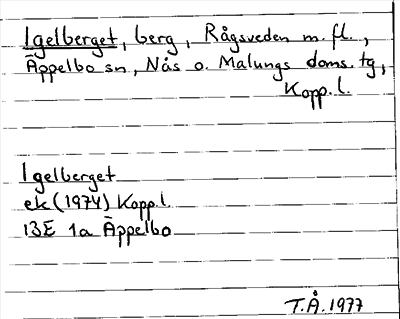 Igelberget, berg, Rågsveden m. fl.,
Äppelbo sn, Nås o. Malungs doms. tg,
Kopp. l.
Igelberget
ek (1974) Kopp. l.
13E 1a Äppelbo
T.Å. 1977